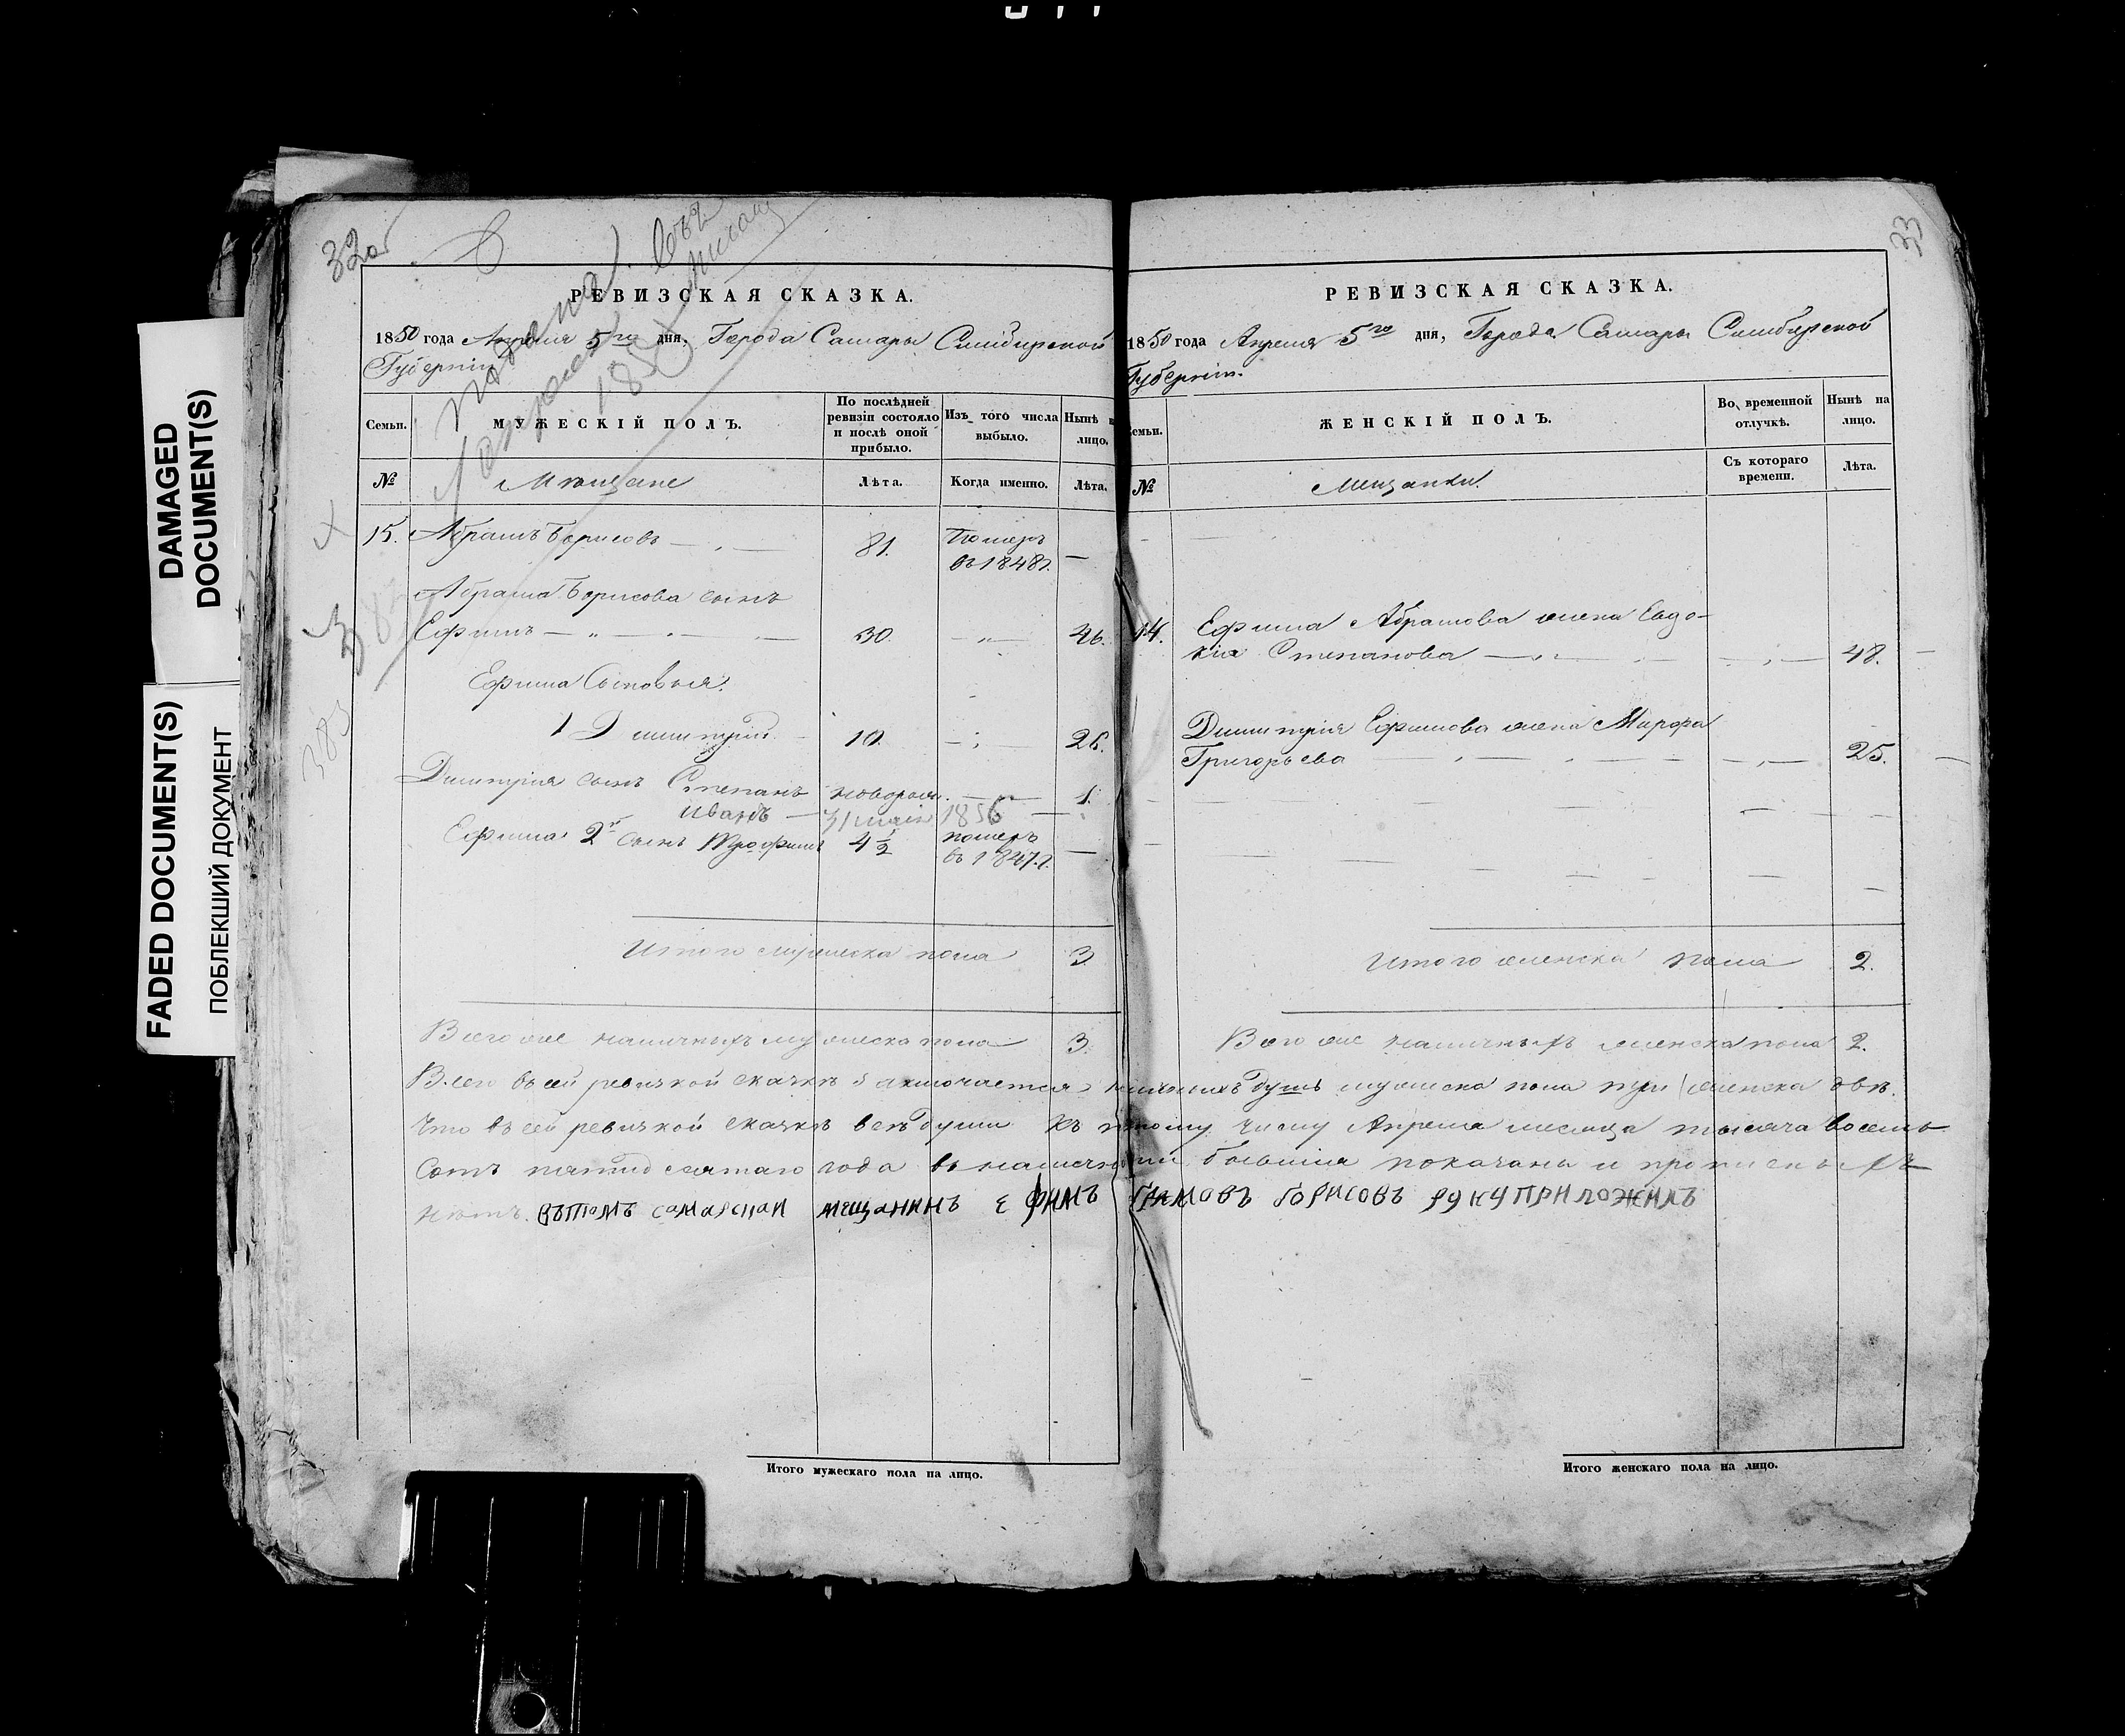 DAMAGED DOCUMENT(S)
FADED DOCUMENT(S)
ПОБЛЕКШИЙ ДОКУМЕНТ
32об
РЕВИЗСКАЯ СКАЗКА.
1850 года Апреля 5го дня, Города Самары Симбирской
Губернiи
Семьи. МУЖЕСКІЙ ПОЛЪ. По послѣдней ревизіи состояло и послѣ оной прибыло. Изъ того числа выбыло. Нынѣ на лицо.
№ Мѣщане Лѣта. Когда именно. Лѣта.
15. Абрамъ Борисовъ 81. Померъ
въ 1848г.
Абрама Борисова сынъ
Ефимъ 30. 46.
Ефима Сыновья.
1 Димитрій 10. 26.
Димитрія сынъ Степанъ новорож. 1.
Иванъ 31 маія 1856
Ефима 2й сынъ Трофимъ 4 1/2 померъ
въ 1847.г.
Итого мужеска пола 3
Всего же наличныхъ мужеска пола 3.
33
РЕВИЗСКАЯ СКАЗКА.
1850 года Апреля 5го дня, Города Самары Симбирской
Губернiи.
Семьи. ЖЕНСКІЙ ПОЛЪ. Во временной отлучкѣ. Нынѣ на лицо.
№ Мещанки. Съ котораго времени. Лѣта.
14. Ефима Абрамова жена Евдо-
кія Степанова 48.
Димитрія Ефимова жена Марфа
Григорьева 25.
Итого женска пола 2.
Всего же наличныхъ женска пола 2.
Всего въ сей ревизкой сказкѣ заключается наличныхъ душъ мужеска пола три женска двѣ.
Что въ сей ревизкой сказкѣ всѣ души къ пятому числу Апреля месяца тысяча восемь
сотъ пятидесятаго года въ наличности бывшія показаны и прописныхъ
нѣтъ. ВЪТОМЪ САМАРСКАИ МЕЩАНИНЪ ЕФИМЪ БОРИСОВЪ РУКУ ПРИЛОЖИЛЪ
Итого мужескаго пола на лицо.
Итого женскаго пола на лицо.